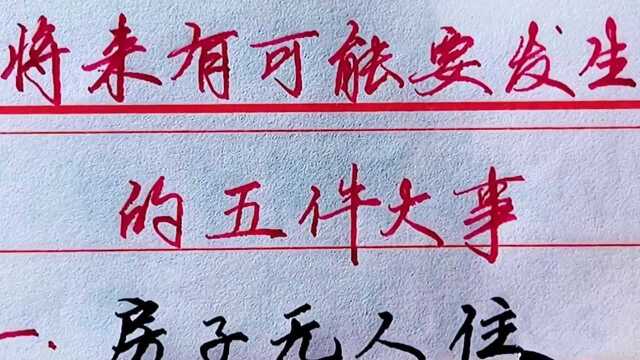 将来有可能要发生
的五件大事
一、房子无人住